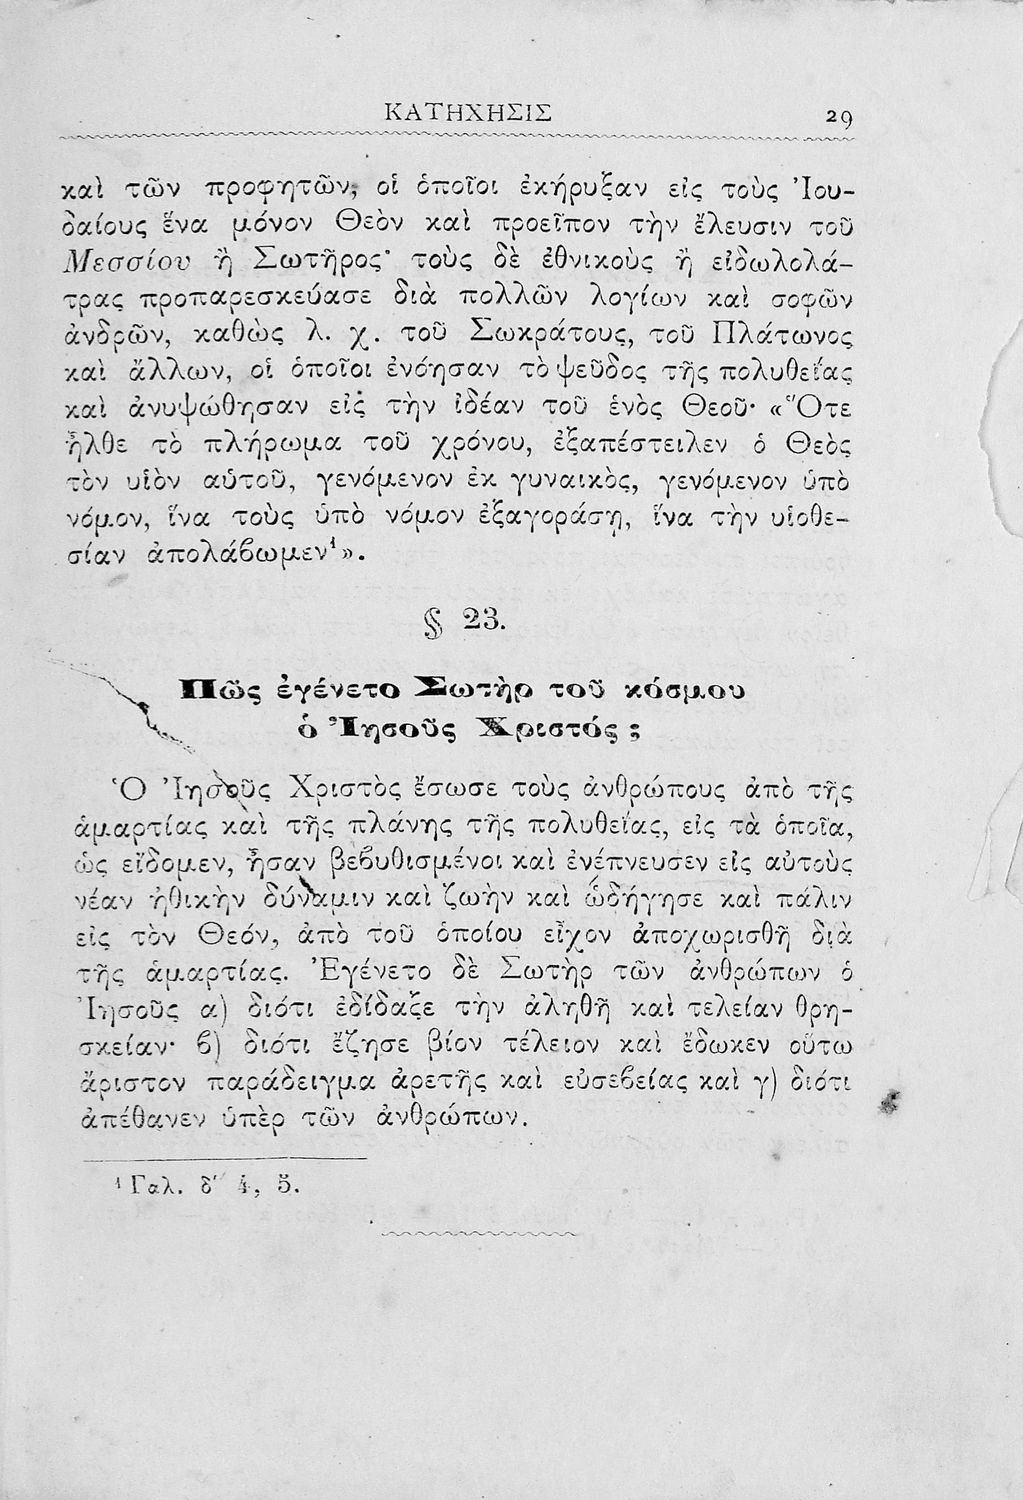 ΚΑΤΗΧΗΣΙΣ 29
καὶ τῶν προφητῶν, οἱ ὁποῖοι ἐκήρυξαν εἰς τοὺς Ἰου-
δαίους ἕνα μόνον Θεὸν καὶ προεῖπον τὴν ἔλευσιν τοῦ
Μεσσίου ἢ Σωτῆρος· τοὺς δὲ ἐθνικοὺς ἢ εἰδωλολά-
τρας προπαρεσκεύασε διὰ πολλῶν λογίων καὶ σοφῶν
ἀνδρῶν, καθὼς λ. χ. τοῦ Σωκράτους, τοῦ Πλάτωνος
καὶ ἄλλων, οἱ ὁποῖοι ἐνόησαν τὸ ψεῦδος τῆς πολυθεΐας
καὶ ἀνυψώθησαν εἰς τὴν ἰδέαν τοῦ ἑνὸς Θεοῦ· «Ὅτε
ἦλθε τὸ πλήρωμα τοῦ χρόνου, ἐξαπέστειλεν ὁ Θεὸς
τὸν υἱὸν αὑτοῦ, γενόμενον ἐκ γυναικὸς, γενόμενον ὑπὸ
νόμον, ἵνα τοὺς ὑπὸ νόμον ἐξαγοράσῃ, ἵνα τὴν υἱοθε-
σίαν ἀπολάβωμεν¹».
§ 23.
Πῶς ἐγένετο Σωτὴρ τοῦ κόσμου
ὁ Ἰησοῦς Χριστός ;
Ὁ Ἰησοῦς Χριστὸς ἔσωσε τοὺς ἀνθρώπους ἀπὸ τῆς
ἁμαρτίας καὶ τῆς πλάνης τῆς πολυθεΐας, εἰς τὰ ὁποῖα,
ὡς εἴδομεν, ἦσαν βεβυθισμένοι καὶ ἐνέπνευσεν εἰς αὐτοὺς
νέαν ἠθικὴν δύναμιν καὶ ζωὴν καὶ ὡδήγησε καὶ πάλιν
εἰς τὸν Θεόν, ἀπὸ τοῦ ὁποίου εἶχον ἀποχωρισθῆ διὰ
τῆς ἁμαρτίας. Ἐγένετο δὲ Σωτὴρ τῶν ἀνθρώπων ὁ
Ἰησοῦς α) διότι ἐδίδαξε τὴν ἀληθῆ καὶ τελείαν θρη-
σκείαν· β) διότι ἔζησε βίον τέλειον καὶ ἔδωκεν οὕτω
ἄριστον παράδειγμα ἀρετῆς καὶ εὐσεβείας καὶ γ) διότι
ἀπέθανεν ὑπὲρ τῶν ἀνθρώπων.
¹ Γαλ. δ΄ 4, 5.